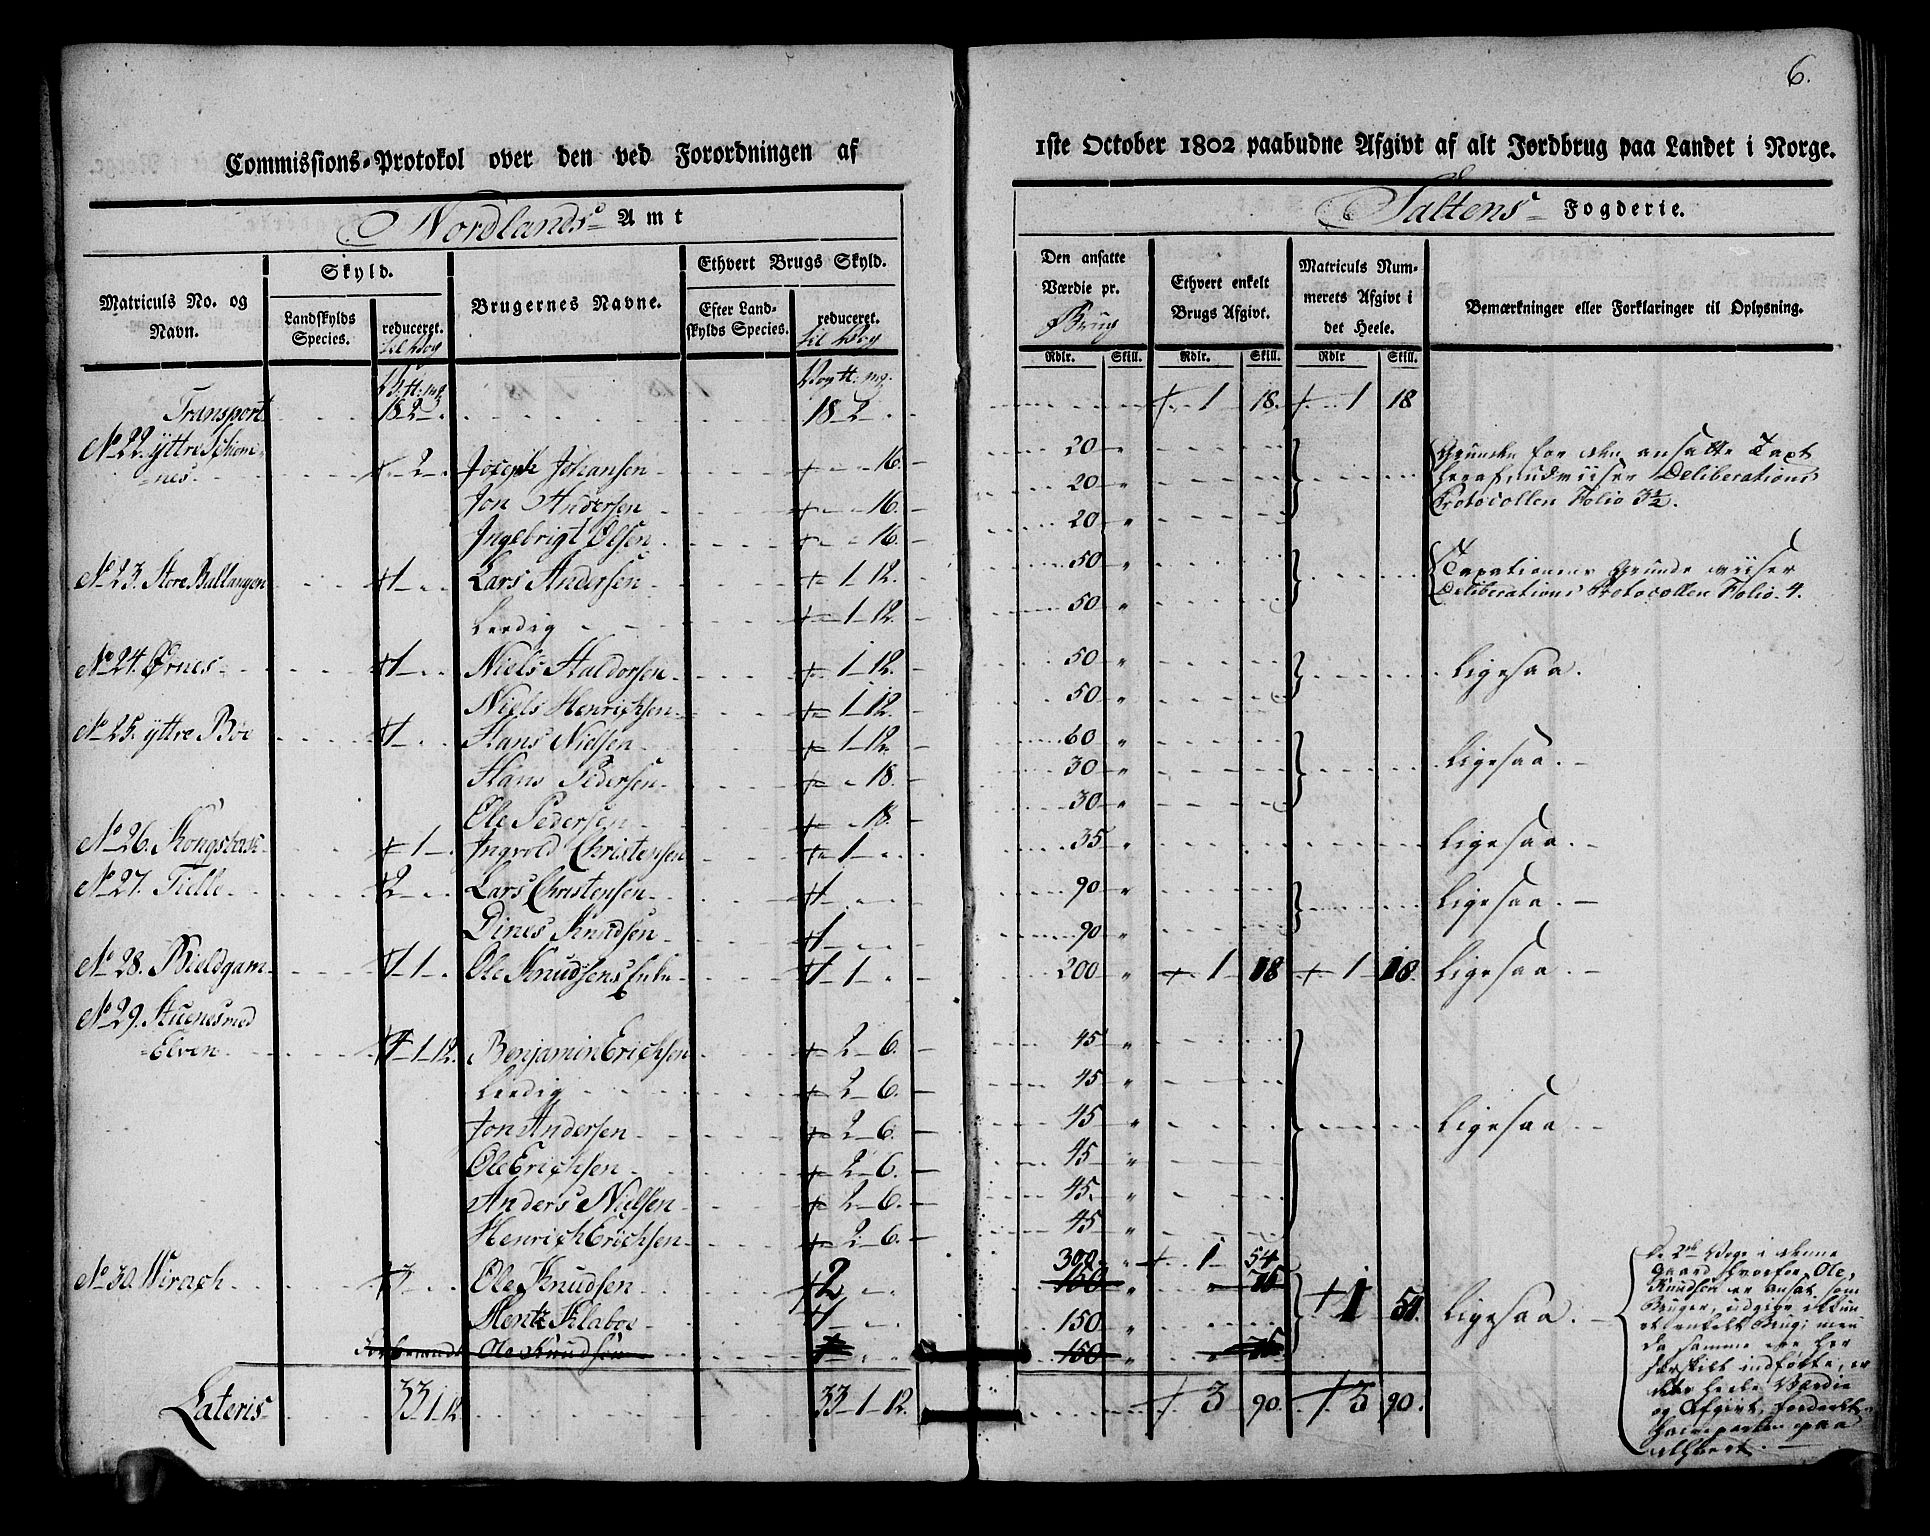 6.
Commissions-Protokol over den ved Forordningen af
1ste October 1802 paabudne Afgivt af alt Jordbrug paa Landet i Norge.
Nordlands Amt
Saltens Fogderie.
Matriculs No. og Navn.
Skyld.
Landskylds Species.
reduceret. til Vog
Brugernes Navne.
Ethvert Brugs Skyld.
Efter Landskylds Species.
reduceret. til Vog
Den ansatte Værdie pr. Brug
Rdlr. Skill.
Ethvert enkelt Brugs Afgivt.
Rdlr. Skill.
Matriculs Nummerets Afgivt i det Heele.
Rdlr Skill.
Bemærkninger eller Forklaringer til Oplysning.
Transport 18 2 . 18 2 . 1 18. 1 18
No 22. yttre
nes 2 Joseph Johansen 16. 20
Jon Andersen 16. 20
Ingebrigt Olsen 16. 20
Grunden for den ansatte Taxt
heraf, udviiser Deliberations
Protocollen Folio 3½.
No 23. Store Ballangen 1 Lars Andersen 1 12. 50
Leedig 1 12. 50
Taxationens Grunde viiser
Deliberations Protocollen Folio. 4.
No 24. Ørnes 1 Niels Haldorsen 1 12. 50 Ligesaa.
Niels Henrichsen 1 12. 50
No 25. yttre Bøe 1 Hans Nielsen 1 12. 60 Ligesaa.
Hans Pedersen 18. 30
Ole Pedersen 18. 30
No 26. 1 Ingvold Christensen 1 35 Ligesaa.
No 27. Tielle 2 Lars Christensen 1 90 Ligesaa.
Dines Knudsen 1 90
No 28. Bieldgam 1 1 Ole Knudsens Enke 1 1 200 1 18 1 18. Ligesaa.
No 29. Stuenes med
Elven 4 1 12. Benjamin Erichsen 2 6. 45
Leedig 2 6. 45
Jon Andersen 2 6. 45 Ligesaa.
Ole Erichsen 2 6. 45
Anders Nielsen 2 6. 45
Henrich Erichsen 2 6. 45
No 30. Wirach 3 Ole Knudsen 2 300. 150 1 54 1 54 Ligesaa.
Hentz Klaboe 1 150
Ole Knudsen 1 150
De 2de Voge i denne
Gaard hvorfor Ole
Knudsen er ansat som
Bruger, udgiør ikkun
et enkelt Brug; men
da samme ere her
særskilt indførte, er
Lateris 33 1 12 33 1 12. 3 90. 3 90.